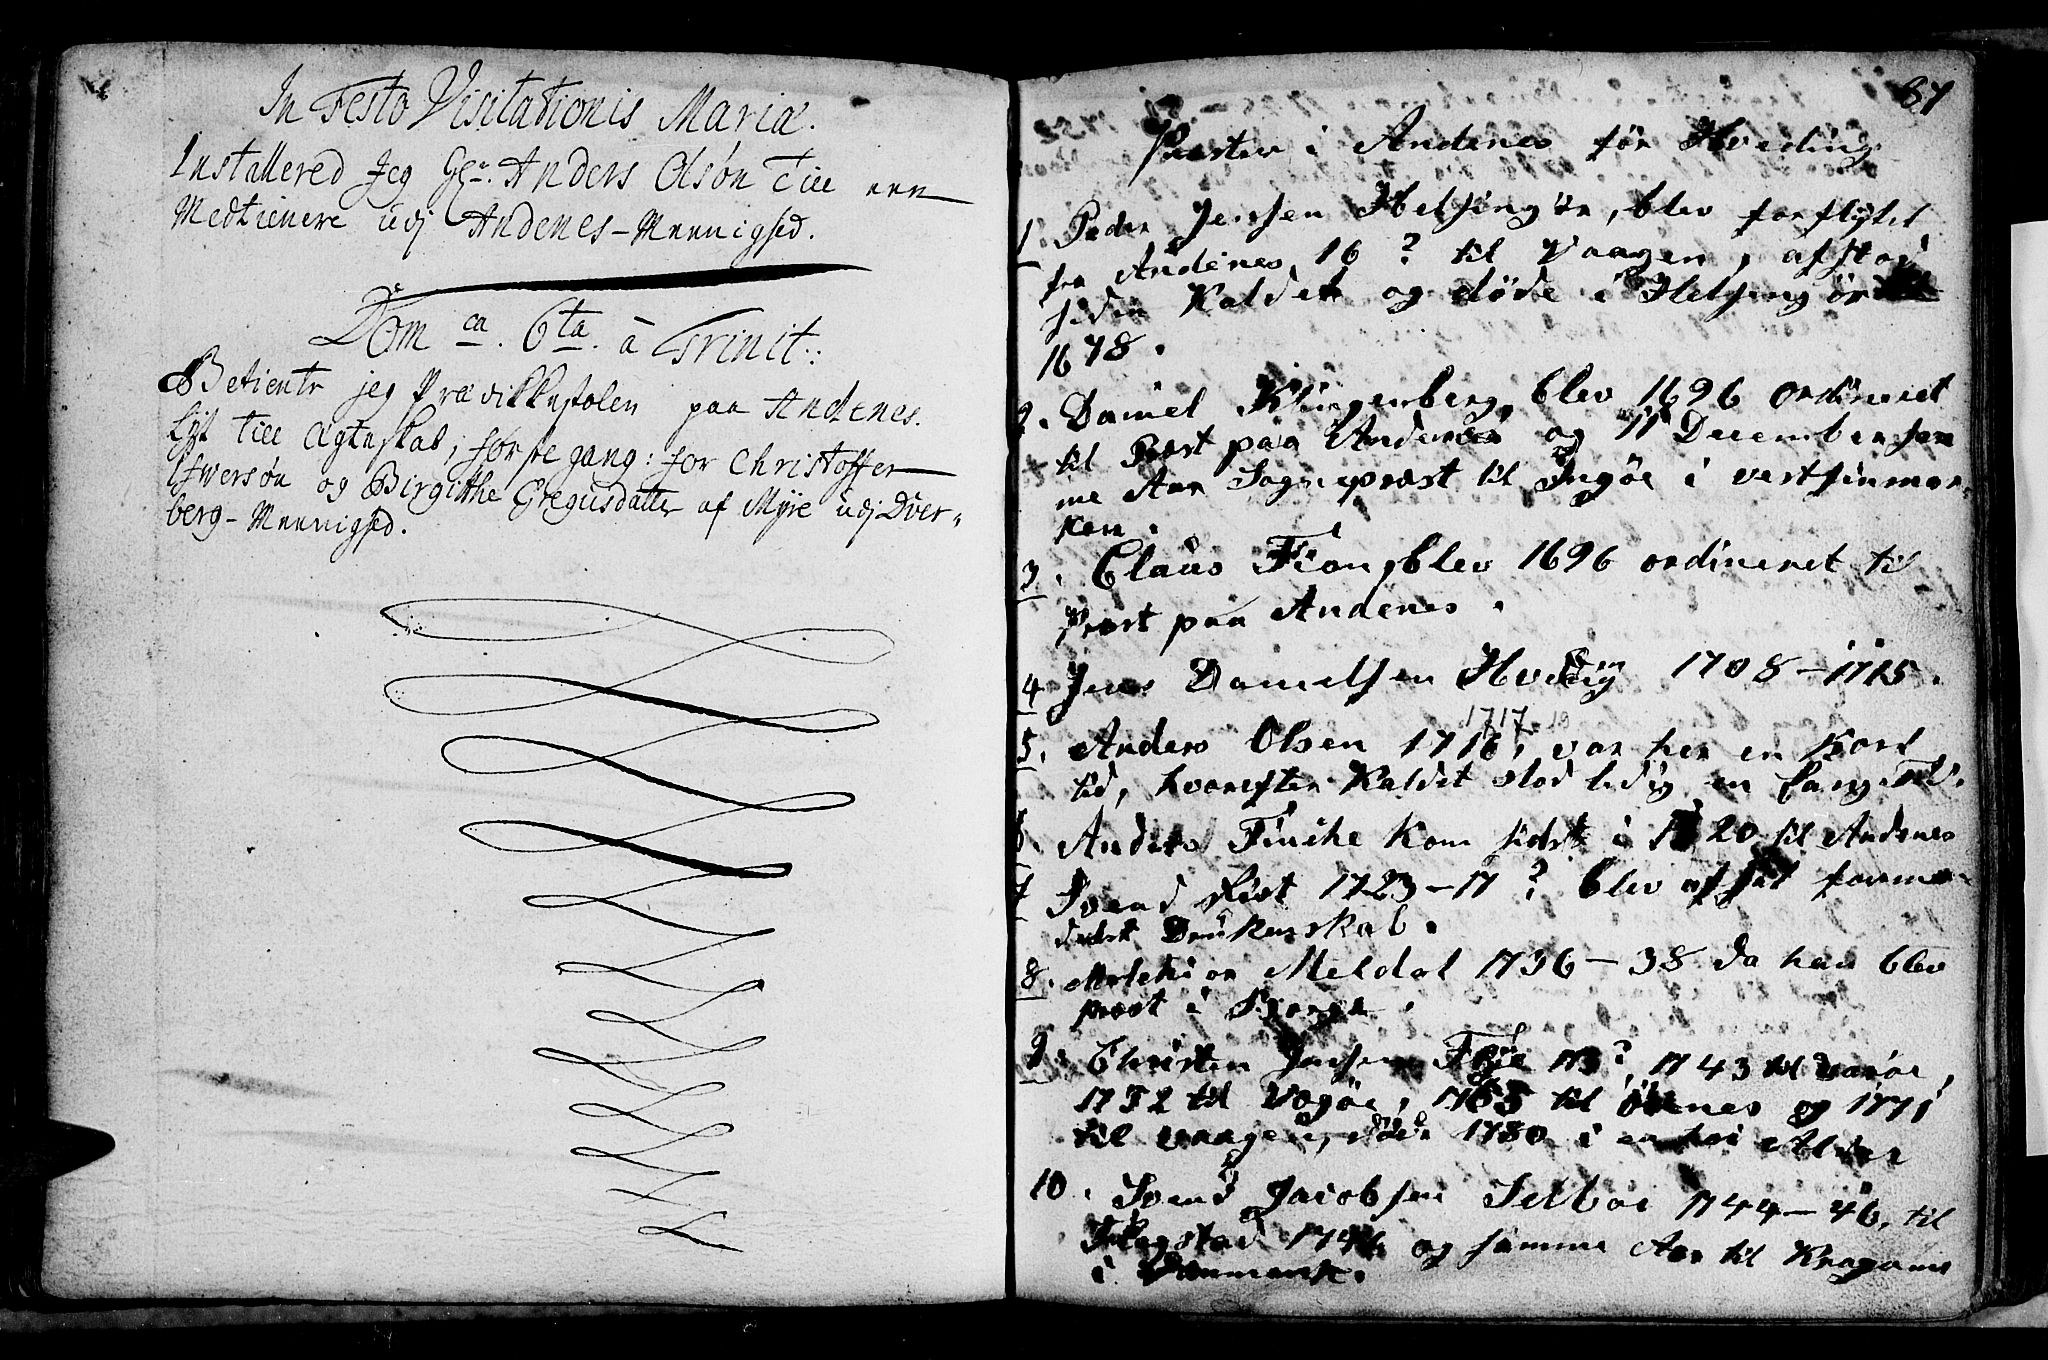 In Festo Visitationis Mariæ.
Installered Jeg Hr. Anders Olsøn Till een
Medtienere udj Andenes-Meenighed.
Dom ca. 6ta. à Trinit:.
Betiente jeg Prædikkestolen paa Andenes.
Lyst till Ægteskab, første gang: for Christoffer
Ifwersøn og Birgitthe Gregusdatter af Myre udj Dver-
berg-Meenighed.
87
Præster i Andenes før Hveding
1. Peder Jensen Helsingør, blev forflytet
fra Andenes 16 ? til Vaagen, afstod
siden Kaldet og døde i Helsingør
1678.
2. Daniel Klingenberg, blev 1696 ordineret
til Præst paa Andenes og 11 December sam
me Aar Sognepræst til Ingøe i vestfinmar-
ken.
3. Claus Friong blev 1696 ordineret til
Præst paa Andenes.
4 Jens Danielsen Hveding 1708-1715.
1717-19
5. Anders Olsen 1716, var her en kort
tid, hvorefter Kaldet stod ledig en lang Tid.
6. Anders Finche kom sidst i 1720 til Andenes
7 Svend Rist 1723-17 ? blev afsat forme-
delst Drukenskab.
8. Melchior Meldal 1736-38 da han blev
præst i Borge.
9. Christen Jensen 173?, 1743 til Værøe,
1752 til Vogøe, 1765 til Øxnes og 1771
til Vaagen, døde 1780 i en høi Alder
10. Svend Jacobsen Selboe 1744-46, til
1746 og samme Aar til
i Danmark.